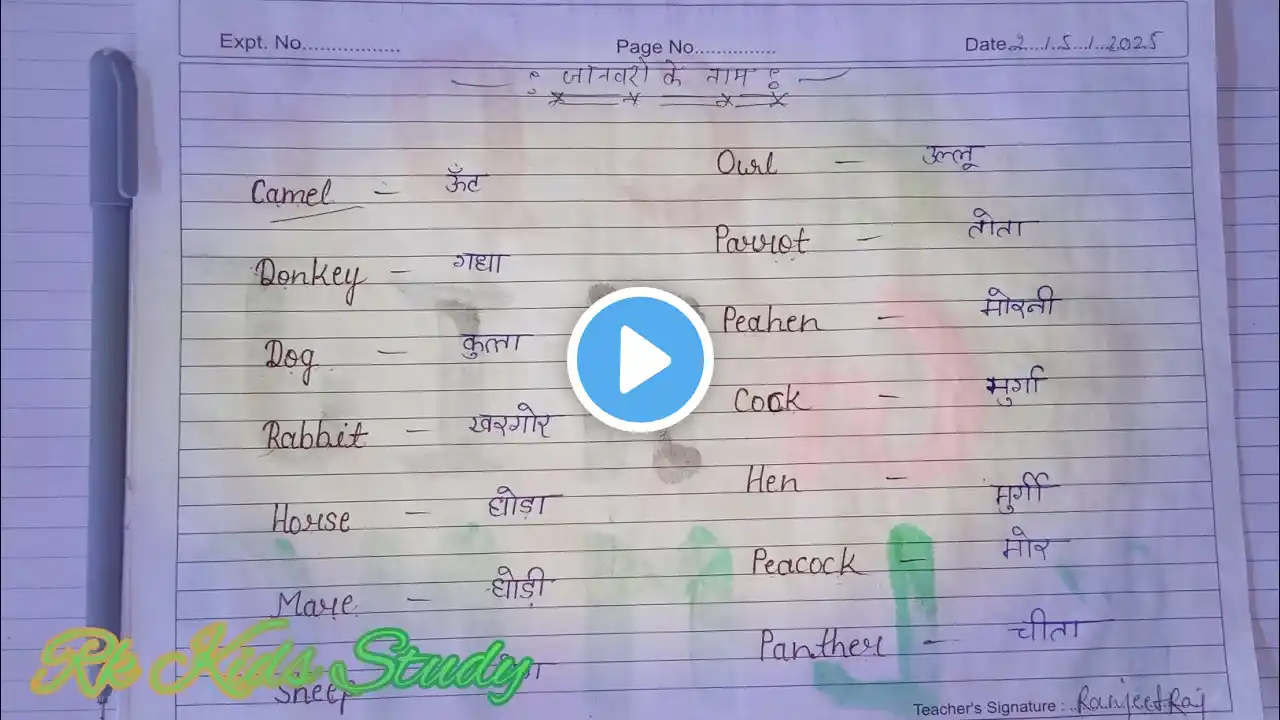 Expt. No.................
Page No...............
Date 2.../.5...1..2025
जानवरो के नाम
Camel – ऊँट
Donkey – गधा
Dog – कुत्ता
Rabbit – खरगोर
Horse – घोड़ा
Mare – घोड़ी
Sheep
Owl – उल्लू
Parrot – तोता
Peahen – मोरनी
Cock – मुर्गा
Hen – मुर्गी
Peacock – मोर
Panther – चीता
Rk Kids Study
Teacher's Signature : Ranjeet Raj